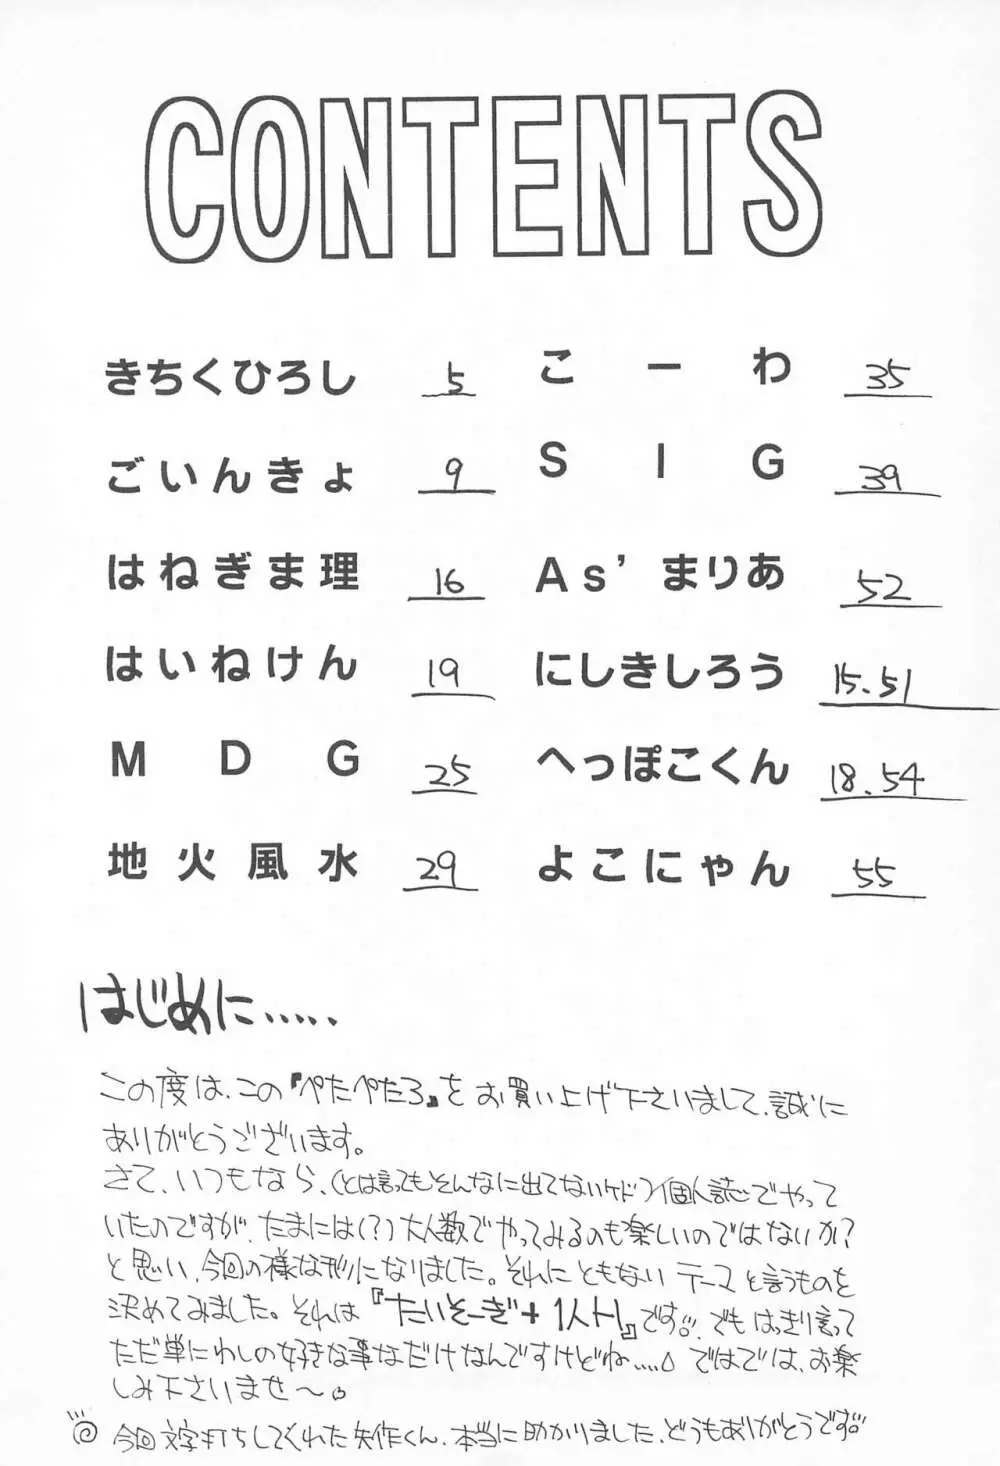 CONTENTS
きちくひろし 5
ごいんきょ 9
はねぎま理 16
はいねけん 19
MDG 25
地火風水 29
こーわ 35
SIG 39
As’まりあ 52
にしきしろう 15.51
へっぽこくん 18.54
よこにゃん 55
はじめに.....
この度は、この『ぺたぺたろ』をお買い上げ下さいまして、誠に
ありがとうございます。
さて、いつもなら、(とは言ってもそんなに出てないケド)個人誌でやって
いたのですが、たまには(?)大人数でやってみるのも楽しいのではないか?
と思い、今回の様な形になりました。それにともない テーマと言うものを
決めてみました。それは『たいそーぎ+1人ト』です。でもはっきり言って
ただ単にわしの好きな事なだけなんですけどね....。ではでは、お楽
しみ下さいませ〜。
今回文字打ちしてくれた矢作くん、本当に助かりました、どうもありがとうです。